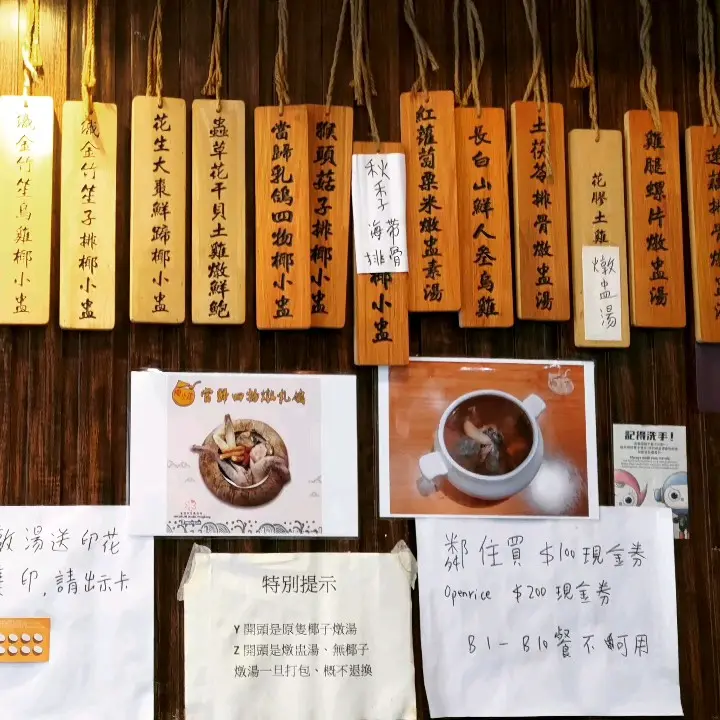 滅金竹笙烏雞椰小盅
滅金竹笙子排椰小盅
花生大棗鮮蹄椰小盅
蟲草花干貝土雞燉鮮鮑
當歸乳鴿四物椰小盅
猴頭菇子排椰小盅
秋季
海帶
排骨
椰小盅
紅蘿蔔粟米燉盅素湯
長白山鮮人參烏雞
土茯苓排骨燉盅湯
花膠土雞
燉盅湯
雞腿螺片燉盅湯
當歸四物燉乳鴿
記得洗手！
湯送印花
印,請出示卡
特別提示
Y 開頭是原隻椰子燉湯
Z 開頭是燉盅湯、無椰子
燉湯一旦打包、概不退換
鄰住買 $100 現金券
Openrice $200 現金券
B1-B10餐不可用